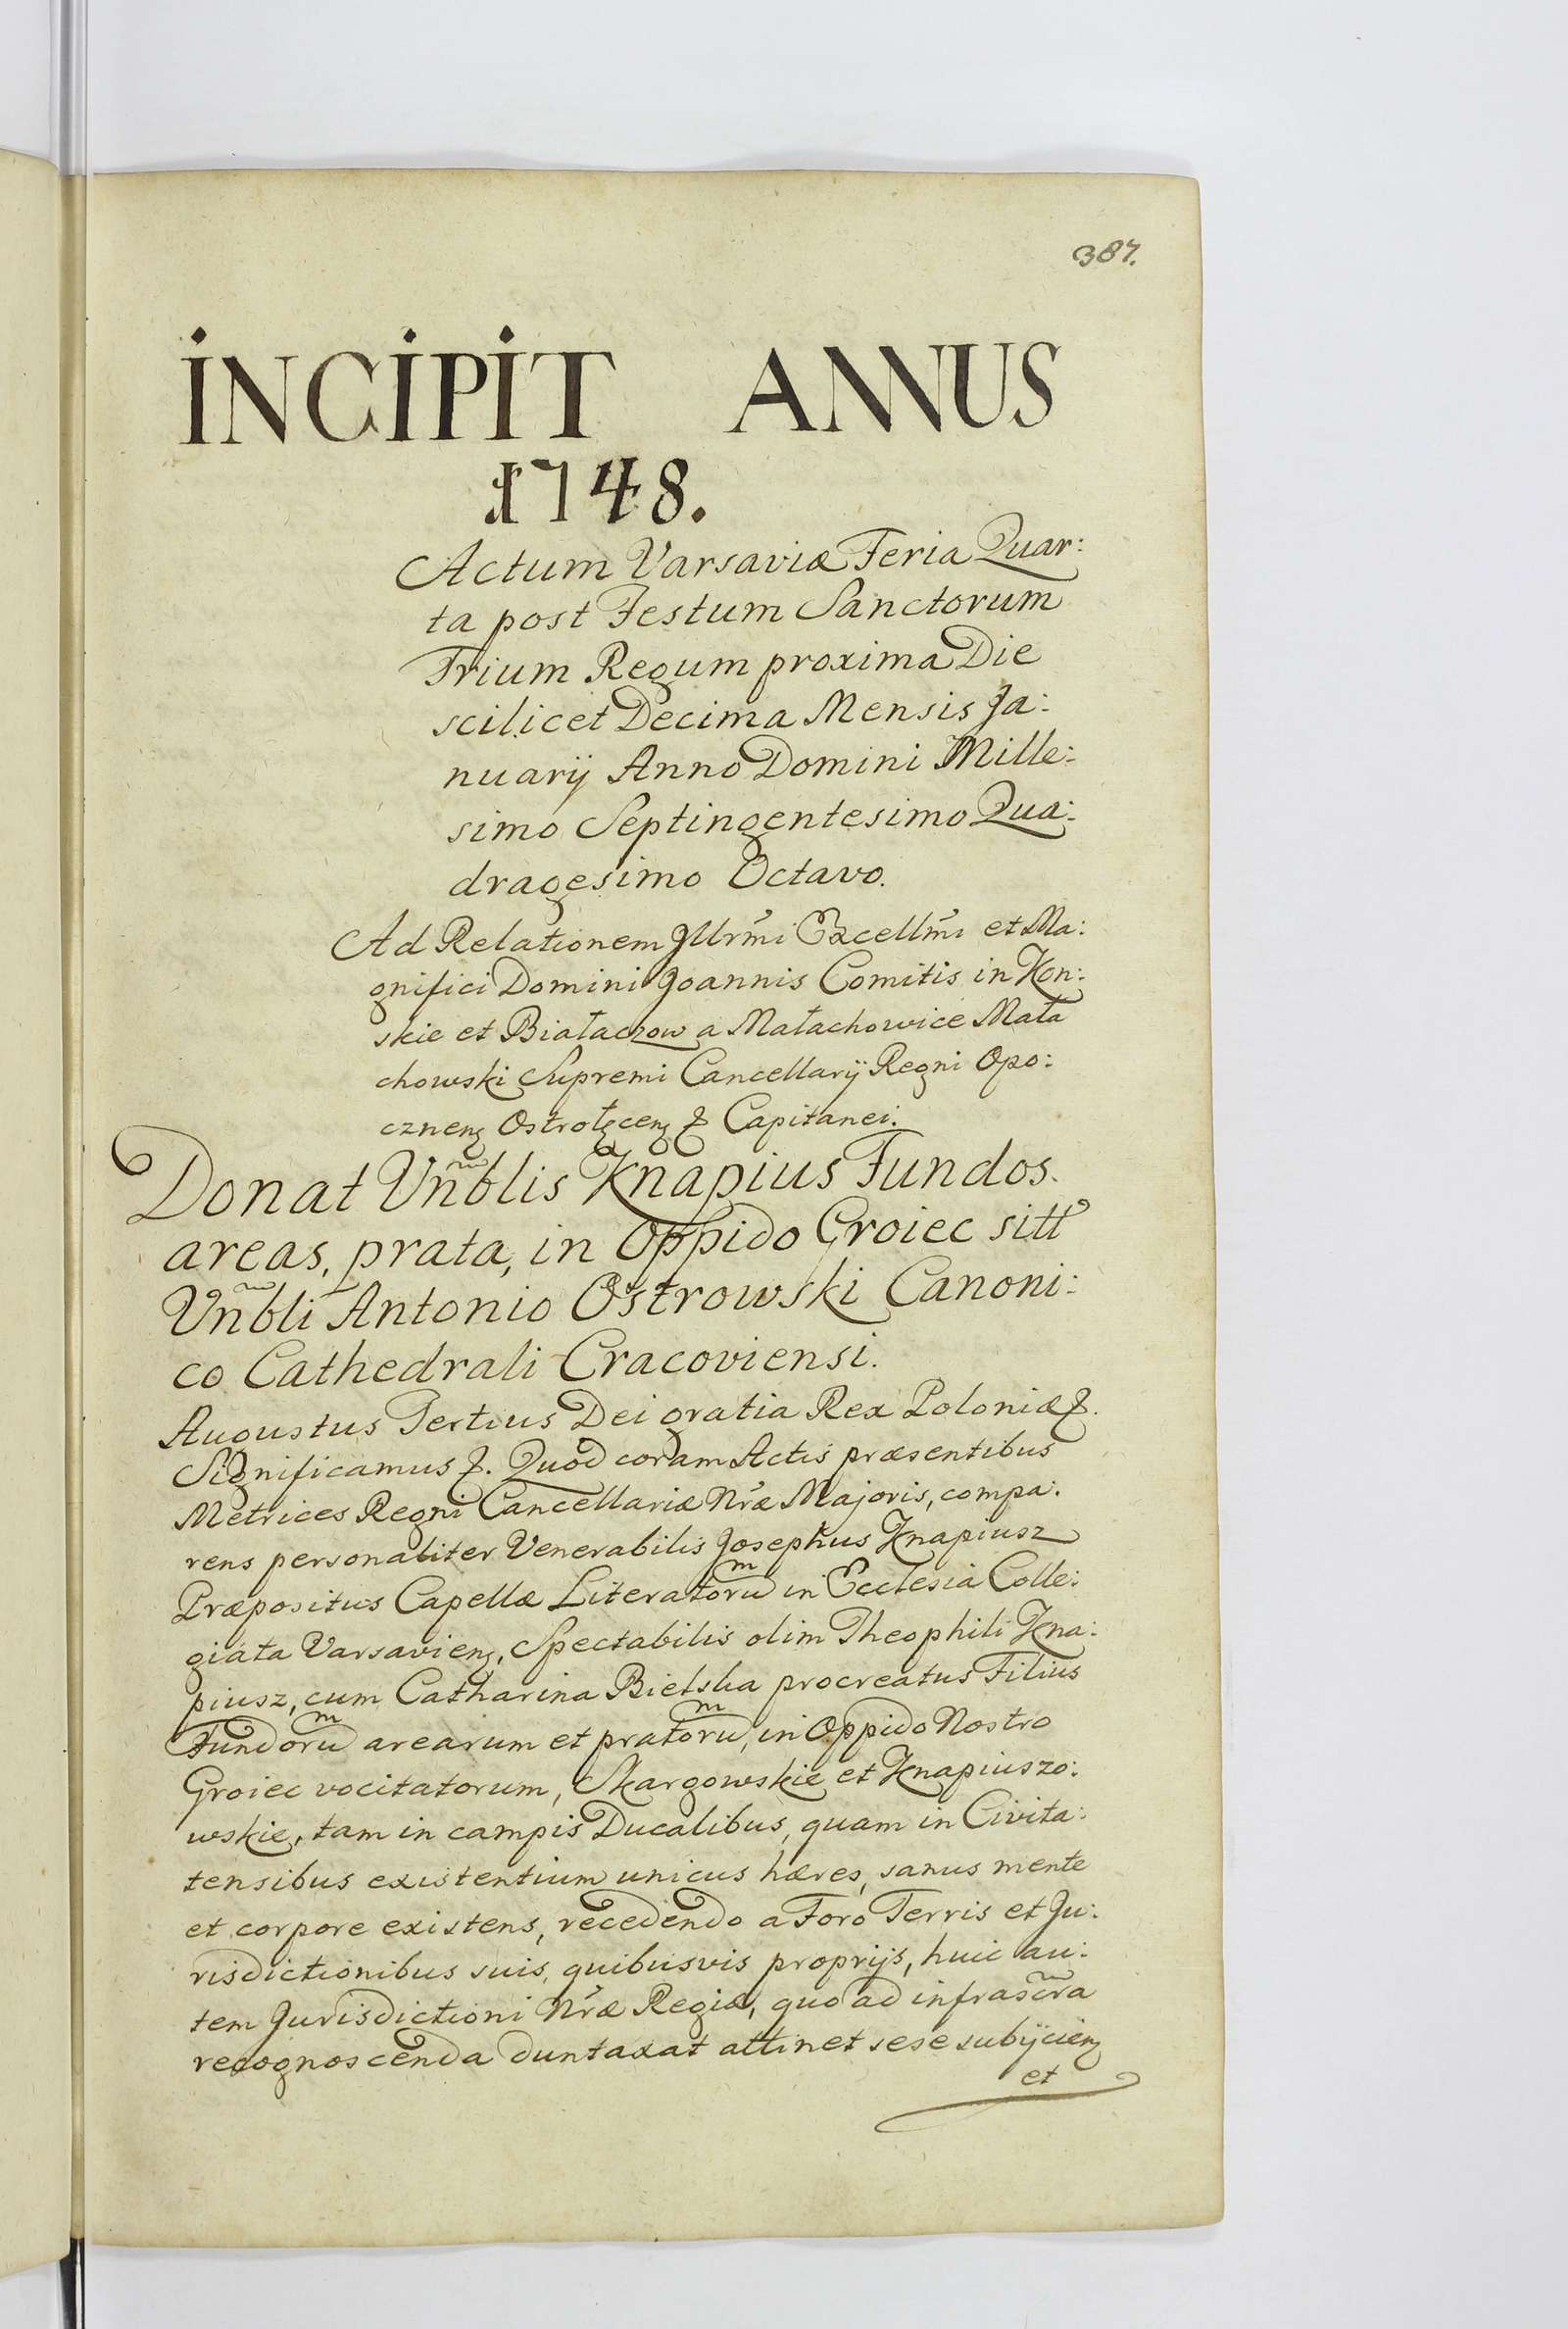 387.
INCIPIT ANNUS
1748.
Actum Varsaviæ Feria Quar:
ta post Festum Sanctorum
Trium Regum proxima Die
scilicet Decima Mensis Ja:
nuarij Anno Domini Mille:
simo Septingentesimo Qua:
dragesimo Octavo.
Ad Relationem Jllrm̃i Excellm̃i et Ma:
gnifici Domini Joannis Comitis in Kon:
skie et Białaczow a Małachowice Mała
chowski Supremi Cancellarij Regni Opo:
cznenꝫ Ostrołęcenꝫ & Capitanei.
Donat Vñblis Knapius Fundos.
areas, prata, in Oppido Groiec sitt
Vñbli Antonio Ostrowski Canoni:
co Cathedrali Cracoviensi.
Augustus Tertius Dei gratia Rex Poloniæ &.
Significamus &. Quod coram Actis præsentibus
Metrices Regni Cancellariæ Nr̃æ Majoris, compa:
rens personaliter Venerabilis Josephus Knapiusz
Præpositus Capellæ Literatoru͂ in Ecclesia Colle:
giata Varsavienꝫ, Spectabilis olim Theophili Kna:
piusz, cum Catharina Bielska procreatus Filius
Fundoru͂ arearum et pratoru͂, in Oppido Nostro
Groiec vocitatorum, Skargowskie et Knapiuszo:
wskie, tam in campis Ducalibus, quam in Civita:
tensibus existentium unicus hæres, sanus mente
et corpore existens, recedendo a Foro Terris et Ju:
risdictionibus suis, quibusvis proprijs, huic au:
tem Jurisdictioni Nr̃æ Regiæ, quo ad infrascr̃a
recognoscenda duntaxat attinet sese subijcienꝫ
et